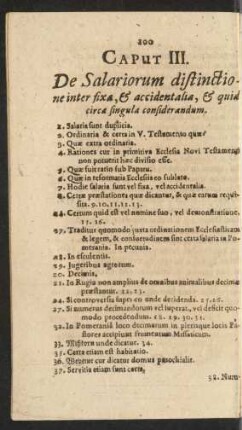 200
CAPUT III.
De Salariorum distinctio-
ne inter fixa, & accidentalia, & quid
circa singula considerandum.
1. Salaria sunt duplicia.
2. Ordinaria & certa in V. Testamento quæ?
3. Quæ extra ordinaria.
4. Rationes cur in primitiva Ecclesia Novi Testamenti
non potuerit hac divisio esse.
5. Quæ fuit ratio sub Papatu.
6. Quæ in reformatis Ecclesiis eo sublato.
7. Hodie salaria sunt vel fixa, vel accidentalia.
8. Certæ præstationes quæ dicantur, & quæ earum requisi-
ta. 9.10.11.12.13.
14. Certum quid est vel numine suo, vel demonstratione.
15. 16.
17. Traditur quomodo juxta ordinationem Ecclesiasticam
& legem, & consuetudinem sint certa salaria in Po-
merania. In pecunia.
18. In esculentis.
19. Jugeribus agrorum.
20. Decimis,
21. In Rugia non amplius de omnibus animalibus decimæ
præstantur. 22. 23.
24. Si controversia super eo unde decidenda. 25.26.
27. Si numerus decimandorum vel superat, vel deficit quo-
modo procedendum. 28. 29. 30. 31.
32. In Pomerania loco decimarum in plerisque locis Pa-
stores accipiunt frumentum Missaticum.
33. Mißkorn unde dicatur. 34.
35. Certa etiam est habitatio.
36. Wedeme cur dicatur domus parochialis.
37. Servitia etiam sunt certa,
32. Num-